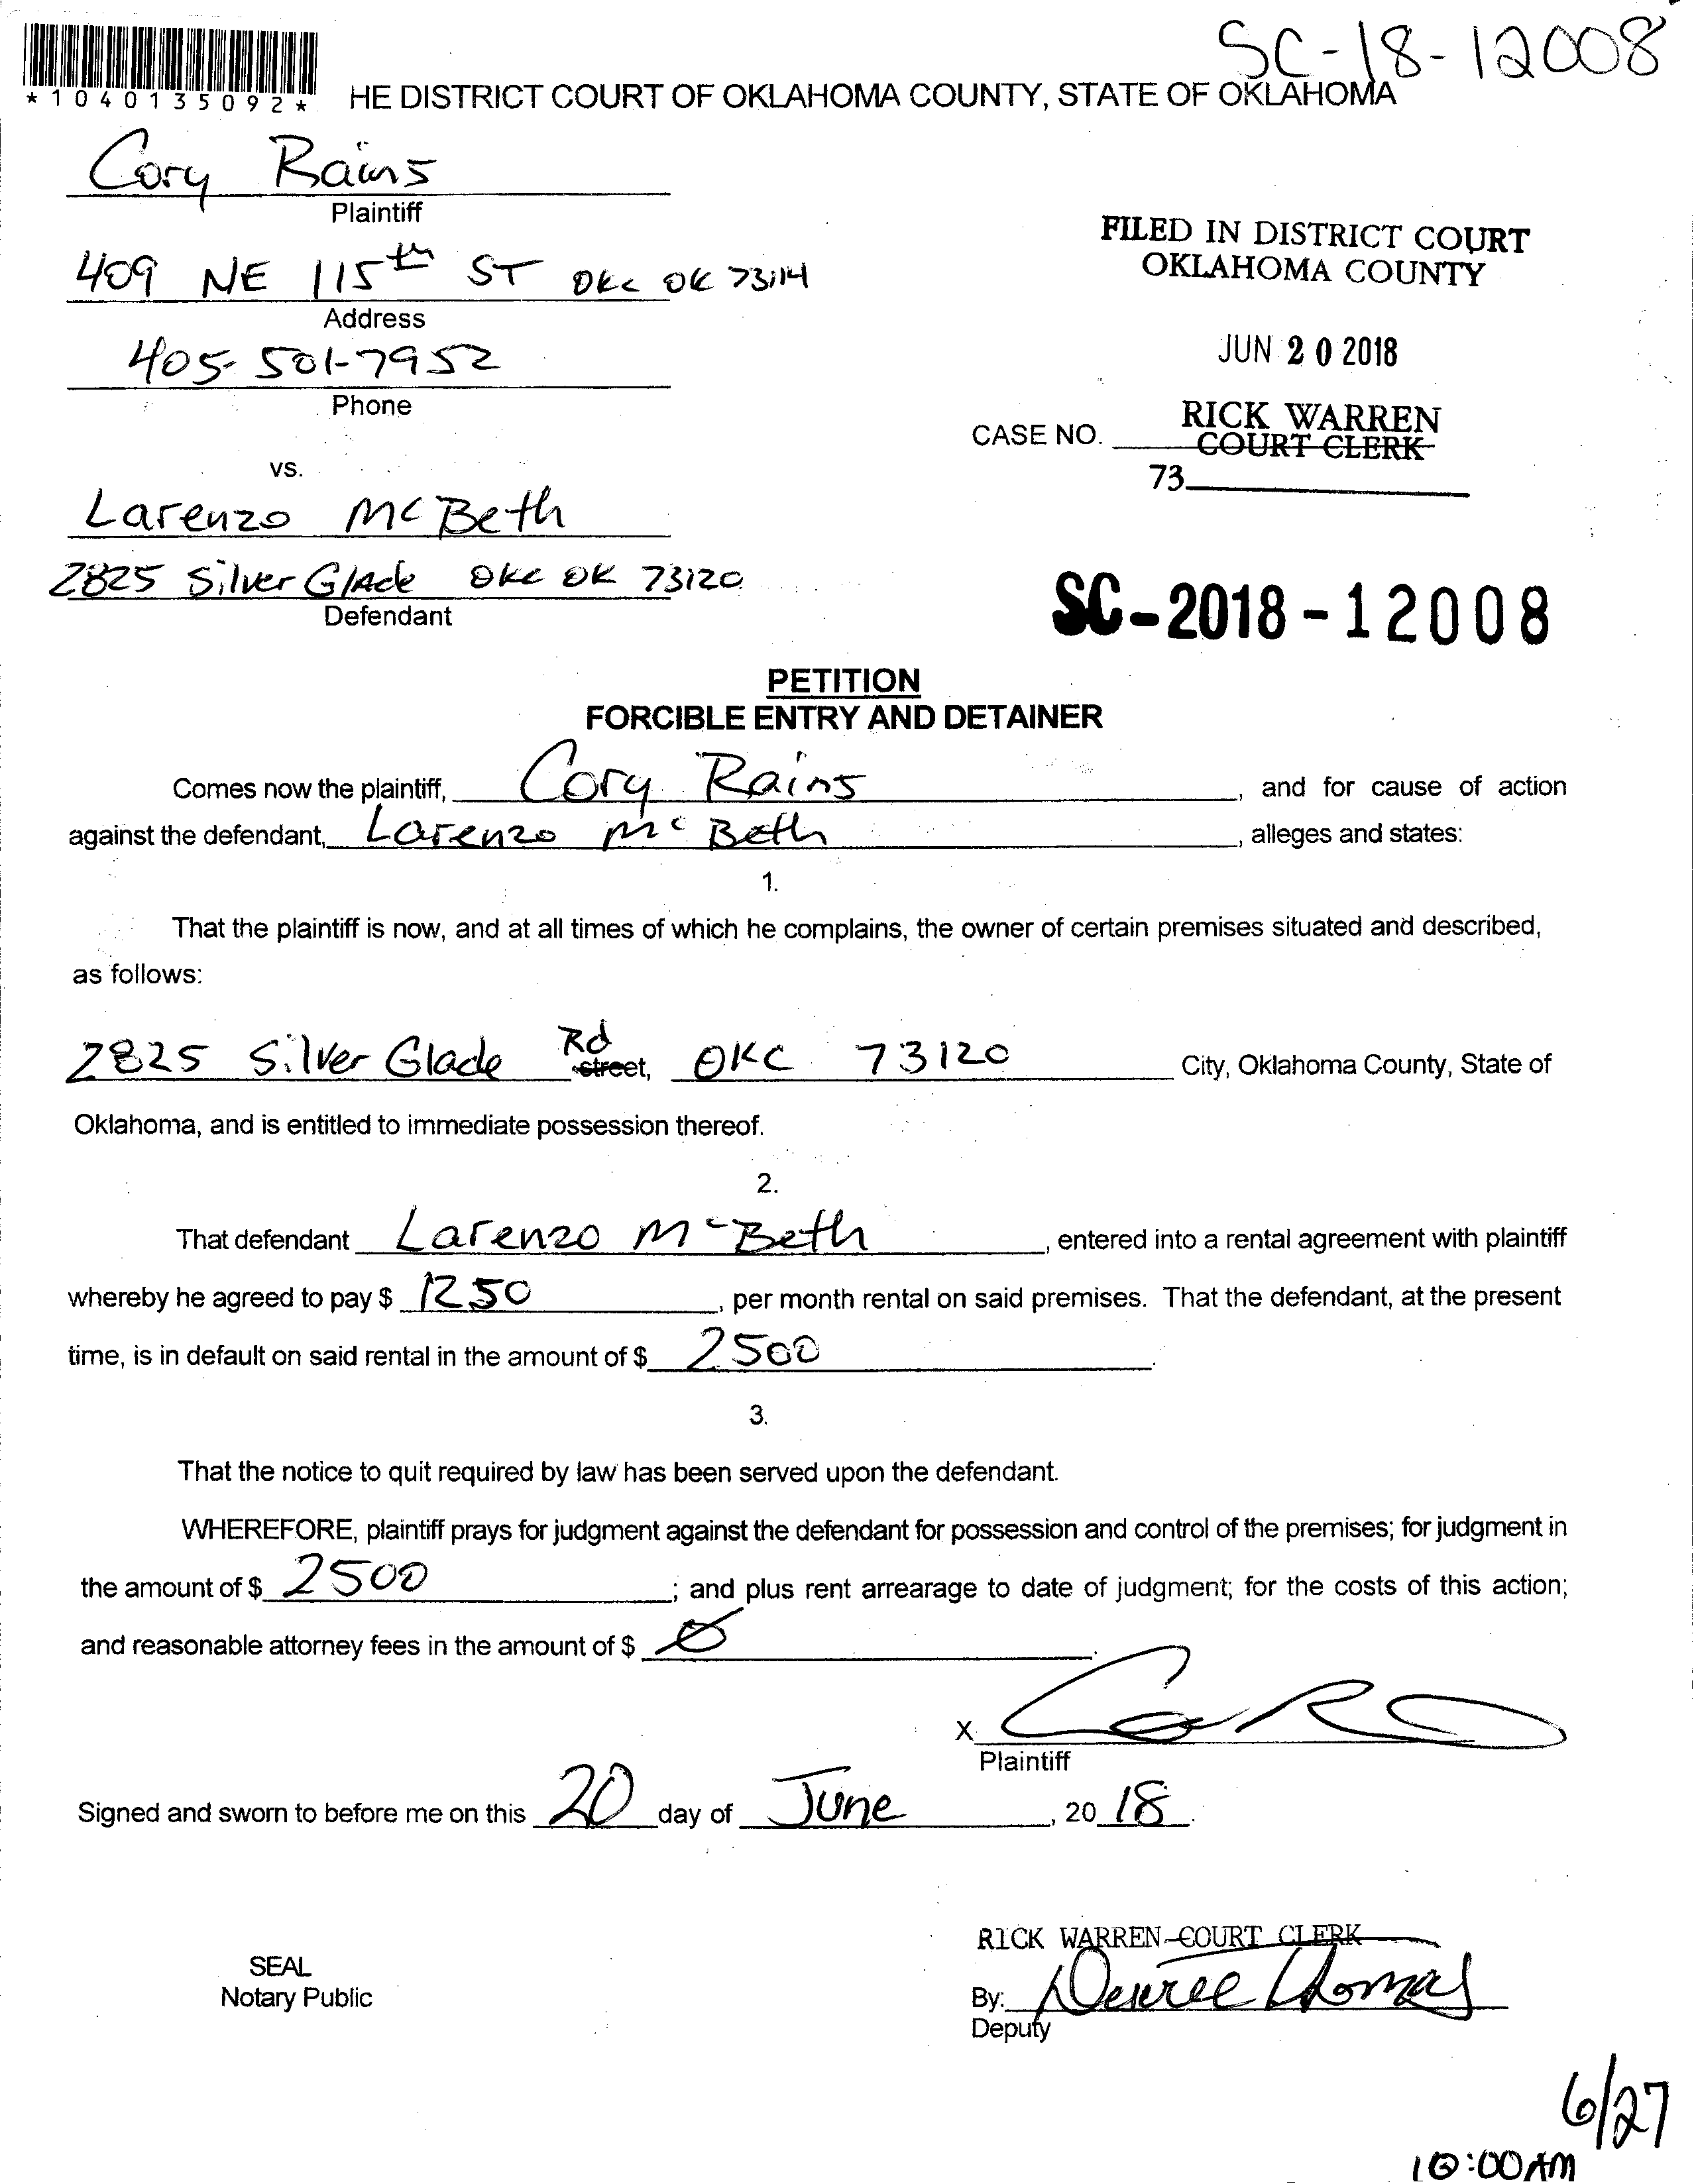 SC-18-12008
*1040135092*
HE DISTRICT COURT OF OKLAHOMA COUNTY, STATE OF OKLAHOMA
Cory Rains
Plaintiff
409 NE 115th ST OKC OK 73114
Address
405-501-7952
Phone
FILED IN DISTRICT COURT
OKLAHOMA COUNTY
JUN 20 2018
RICK WARREN
COURT CLERK
CASE NO.
73
vs.
Larenzo McBeth
2825 Silver Glade OKC OK 73120
Defendant
SC-2018-12008
PETITION
FORCIBLE ENTRY AND DETAINER
Comes now the plaintiff, Cory Rains, and for cause of action
against the defendant, Larenzo McBeth, alleges and states:
1.
That the plaintiff is now, and at all times of which he complains, the owner of certain premises situated and described,
as follows:
2825 Silver Glade Rd street, OKC 73120 City, Oklahoma County, State of
Oklahoma, and is entitled to immediate possession thereof.
2.
That defendant Larenzo McBeth, entered into a rental agreement with plaintiff
whereby he agreed to pay $ 1250, per month rental on said premises. That the defendant, at the present
time, is in default on said rental in the amount of $ 2500.
3.
That the notice to quit required by law has been served upon the defendant.
WHEREFORE, plaintiff prays for judgment against the defendant for possession and control of the premises; for judgment in
the amount of $ 2500; and plus rent arrearage to date of judgment; for the costs of this action;
and reasonable attorney fees in the amount of $ 0.
X
Plaintiff
Signed and sworn to before me on this 20 day of June, 20 18.
SEAL
Notary Public
RICK WARREN COURT CLERK
By: Desiree Thomas
Deputy
6/27
10:00AM